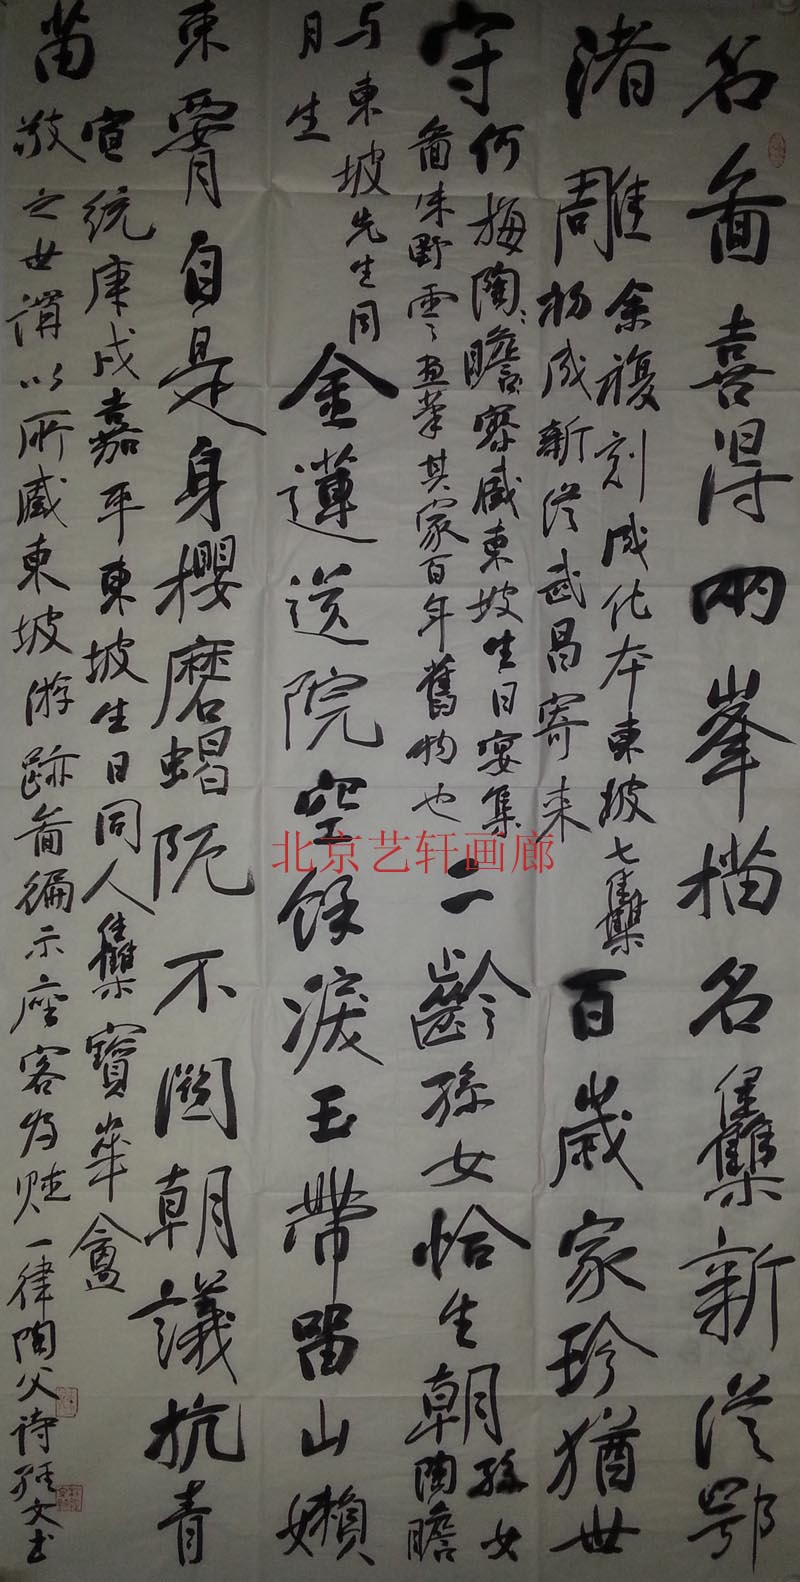 名啚喜得兩峯描名雧新從鄂
渚雕
余複刻成化本東坡七雧
楊成新從武昌寄来
百歲家珍猶世
守
何梅陶瞻齋藏東坡生日宴集
啚朱野雲畫筆其家百年舊物也
二齡孫女恰生朝
孫女
陶瞻
与東坡先生同
月生
金蓮送院空餘淚玉帶留山嬾
束腰自是身櫻磨蝎阨不關朝議抗青
苗
宣統庚戌嘉平東坡生日同人雧寶華盦
敬之世謂以所藏東坡游跡啚徧示座客为赋一律陶父诗 文书
北京艺轩画廊